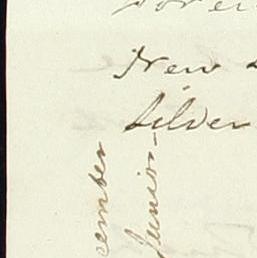 New
Silver
cember
Junior